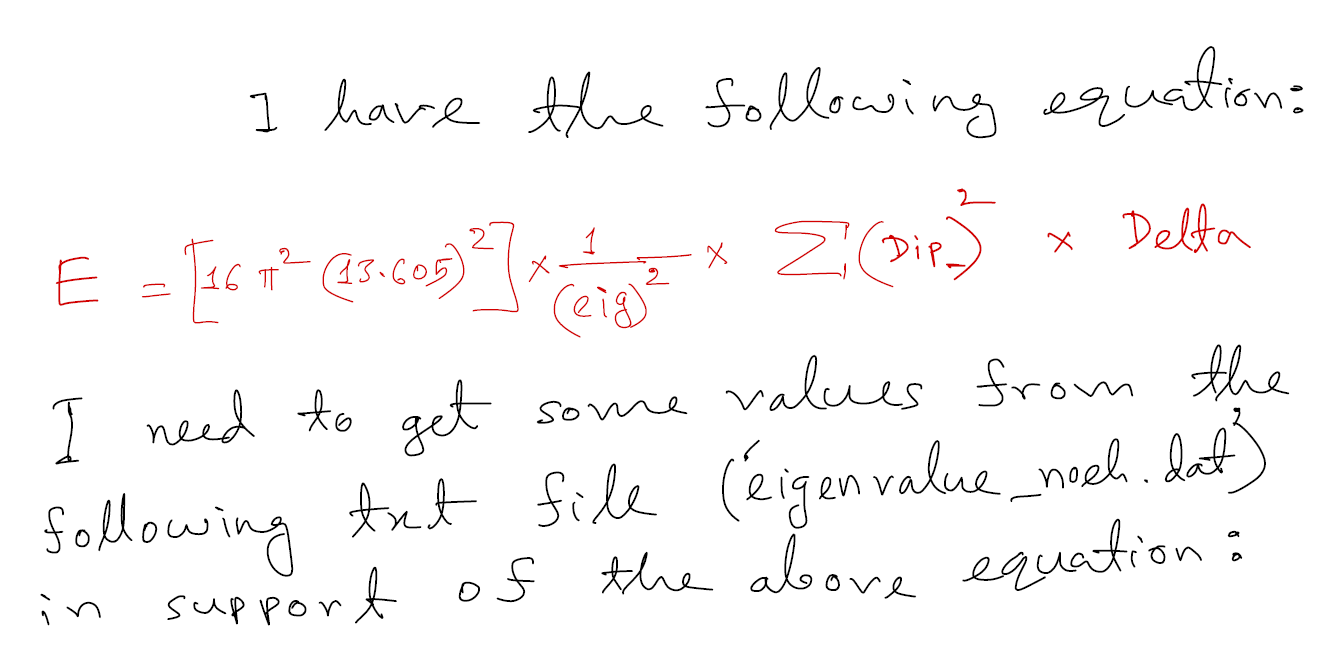 I have the following equation:
E = [16 π² (13.605)²] × 1/(eig)² × Σ(Dip_)² × Delta
I need to get some values from the
following txt file ('eigenvalue_noeh.dat')
in support of the above equation: